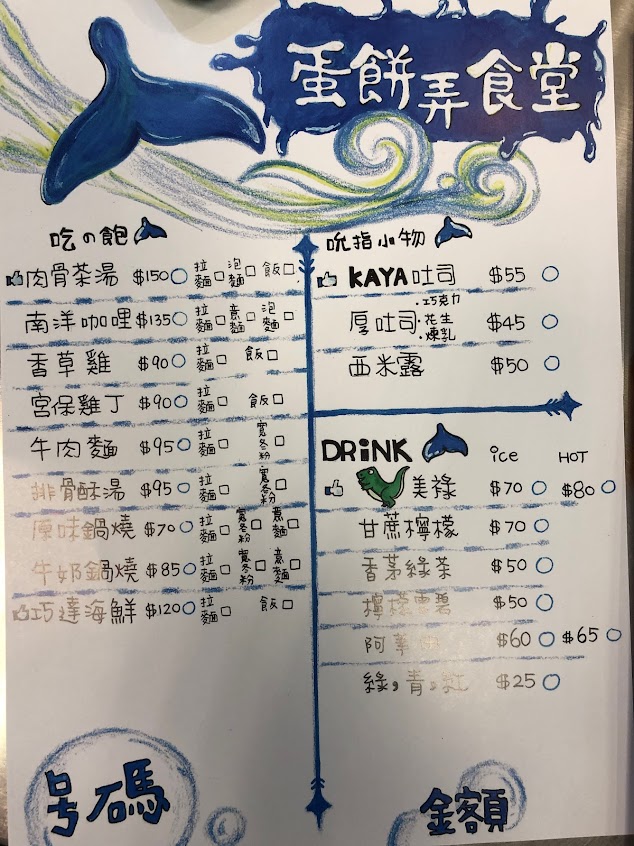 蛋餅弄食堂
吃の飽
肉骨茶湯 $150 拉麵 泡麵 飯
南洋咖哩 $135 拉麵 意麵 泡麵
香草雞 $90 拉麵 飯
宮保雞丁 $90 拉麵 飯
牛肉麵 $95 寬冬粉
排骨酥湯 $95 拉麵 寬冬粉
原味鍋燒 $70 拉麵 寬冬粉 意麵
牛奶鍋燒 $85 拉麵 寬冬粉 意麵
巧達海鮮 $120 拉麵 飯
吮指小物
KAYA吐司 $55
厚吐司 •巧克力 •花生 •煉乳 $45
西米露 $50
DRiNK ice HOT
美祿 $70 $80
甘蔗檸檬 $70
香茅綠茶 $50
檸檬雪碧 $50
阿華 $60 $65
綠,青,紅 $25
号碼
金客頁